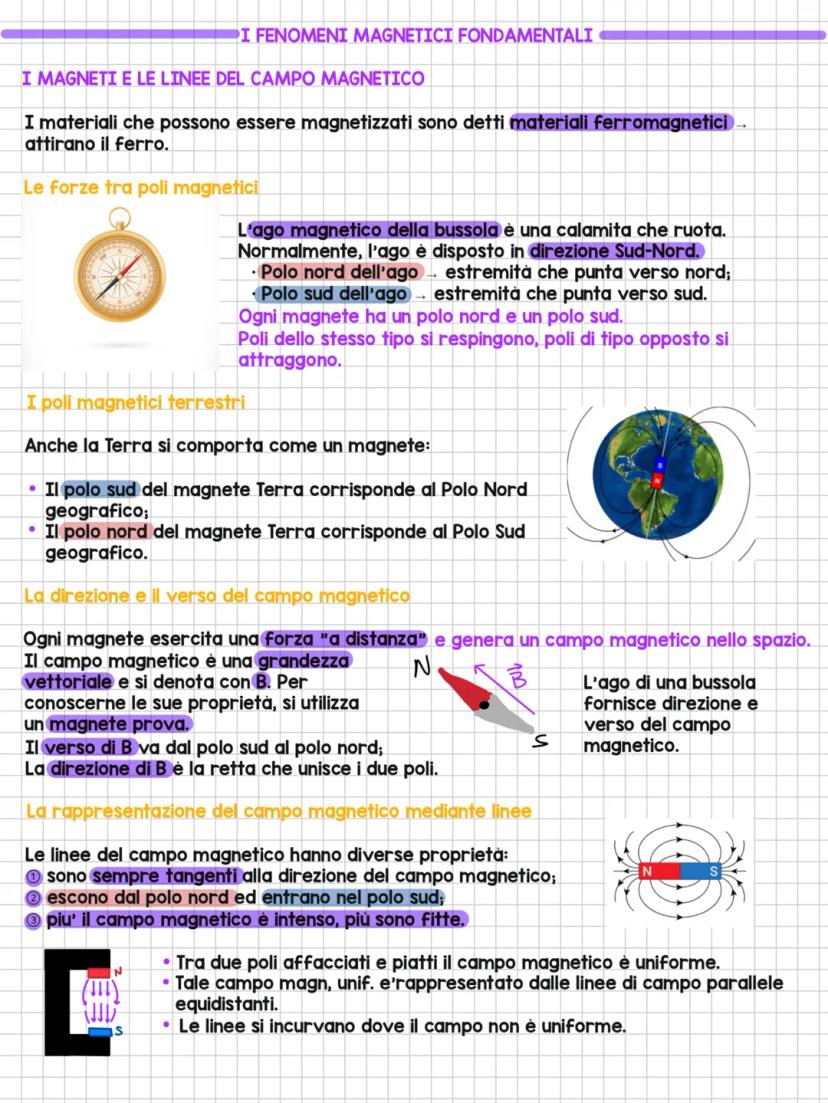 I FENOMENI MAGNETICI FONDAMENTALI
I MAGNETI E LE LINEE DEL CAMPO MAGNETICO
I materiali che possono essere magnetizzati sono detti materiali ferromagnetici →
attirano il ferro.
Le forze tra poli magnetici
L'ago magnetico della bussola è una calamita che ruota.
Normalmente, l'ago è disposto in direzione Sud-Nord.
· Polo nord dell'ago → estremità che punta verso nord;
· Polo sud dell'ago → estremità che punta verso sud.
Ogni magnete ha un polo nord e un polo sud.
Poli dello stesso tipo si respingono, poli di tipo opposto si
attraggono.
I poli magnetici terrestri
Anche la Terra si comporta come un magnete:
• Il polo sud del magnete Terra corrisponde al Polo Nord
geografico;
• Il polo nord del magnete Terra corrisponde al Polo Sud
geografico.
S
N
La direzione e il verso del campo magnetico
Ogni magnete esercita una forza "a distanza" e genera un campo magnetico nello spazio.
Il campo magnetico è una grandezza
vettoriale e si denota con B. Per
conoscerne le sue proprietà, si utilizza
un magnete prova.
Il verso di B va dal polo sud al polo nord;
La direzione di B è la retta che unisce i due poli.
N
B
S
L'ago di una bussola
fornisce direzione e
verso del campo
magnetico.
La rappresentazione del campo magnetico mediante linee
Le linee del campo magnetico hanno diverse proprietà:
① sono sempre tangenti alla direzione del campo magnetico;
② escono dal polo nord ed entrano nel polo sud;
③ piu' il campo magnetico è intenso, più sono fitte.
N S
N
S
• Tra due poli affacciati e piatti il campo magnetico è uniforme.
• Tale campo magn, unif. e'rappresentato dalle linee di campo parallele
equidistanti.
• Le linee si incurvano dove il campo non è uniforme.